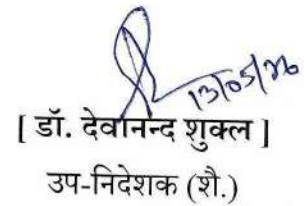 13/05/26
[ डॉ. देवानन्द शुक्ल ]
उप-निदेशक (शै.)